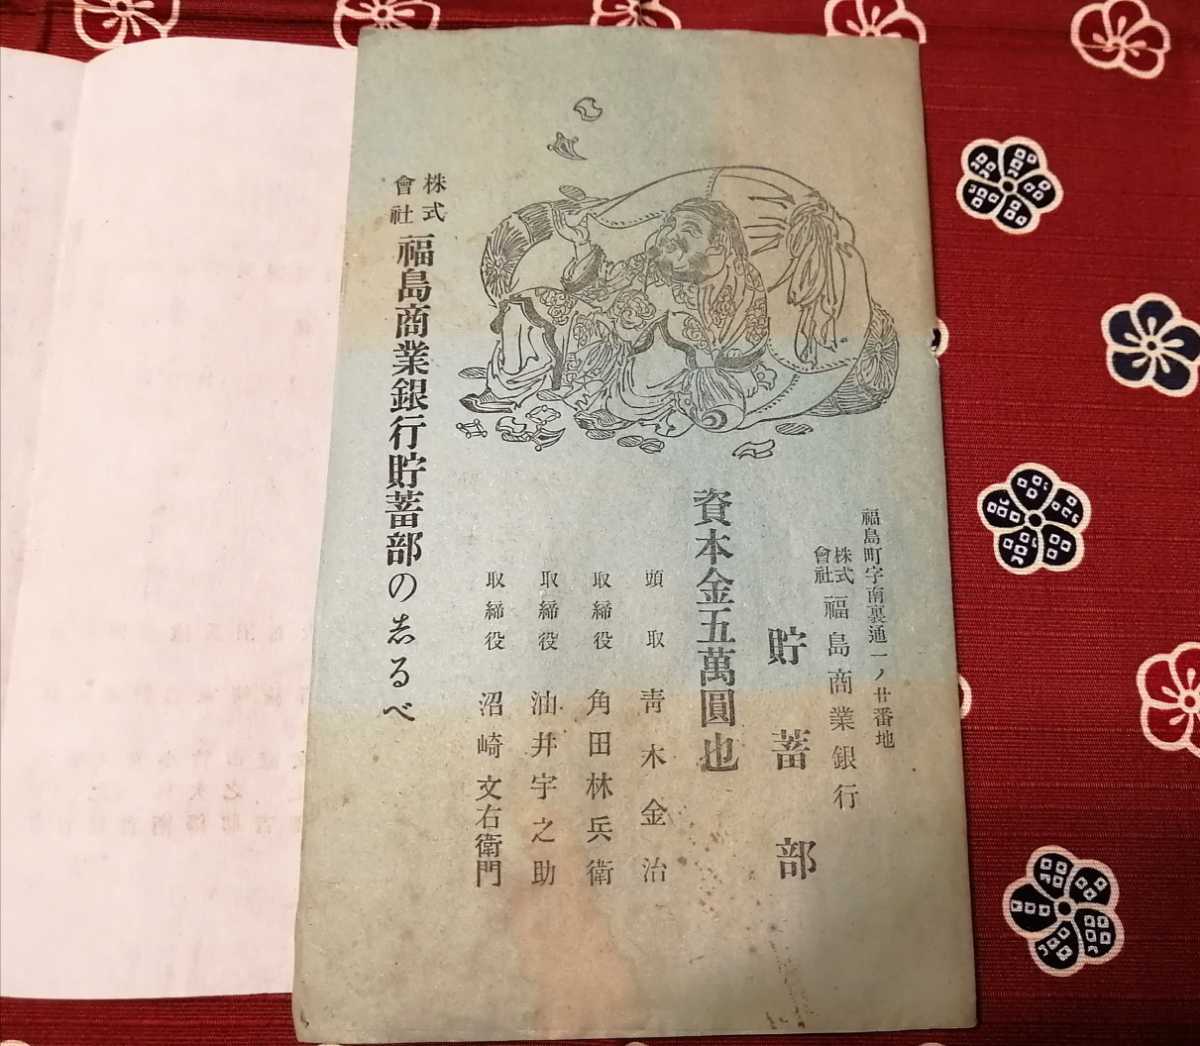 福島町字南裏通一ノ廿番地
株式會社福島商業銀行
貯蓄部
資本金五萬圓也
頭取 青木金治
取締役 角田林兵衛
取締役 油井宇之助
取締役 沼崎文右衛門
株式會社福島商業銀行貯蓄部のしるべ